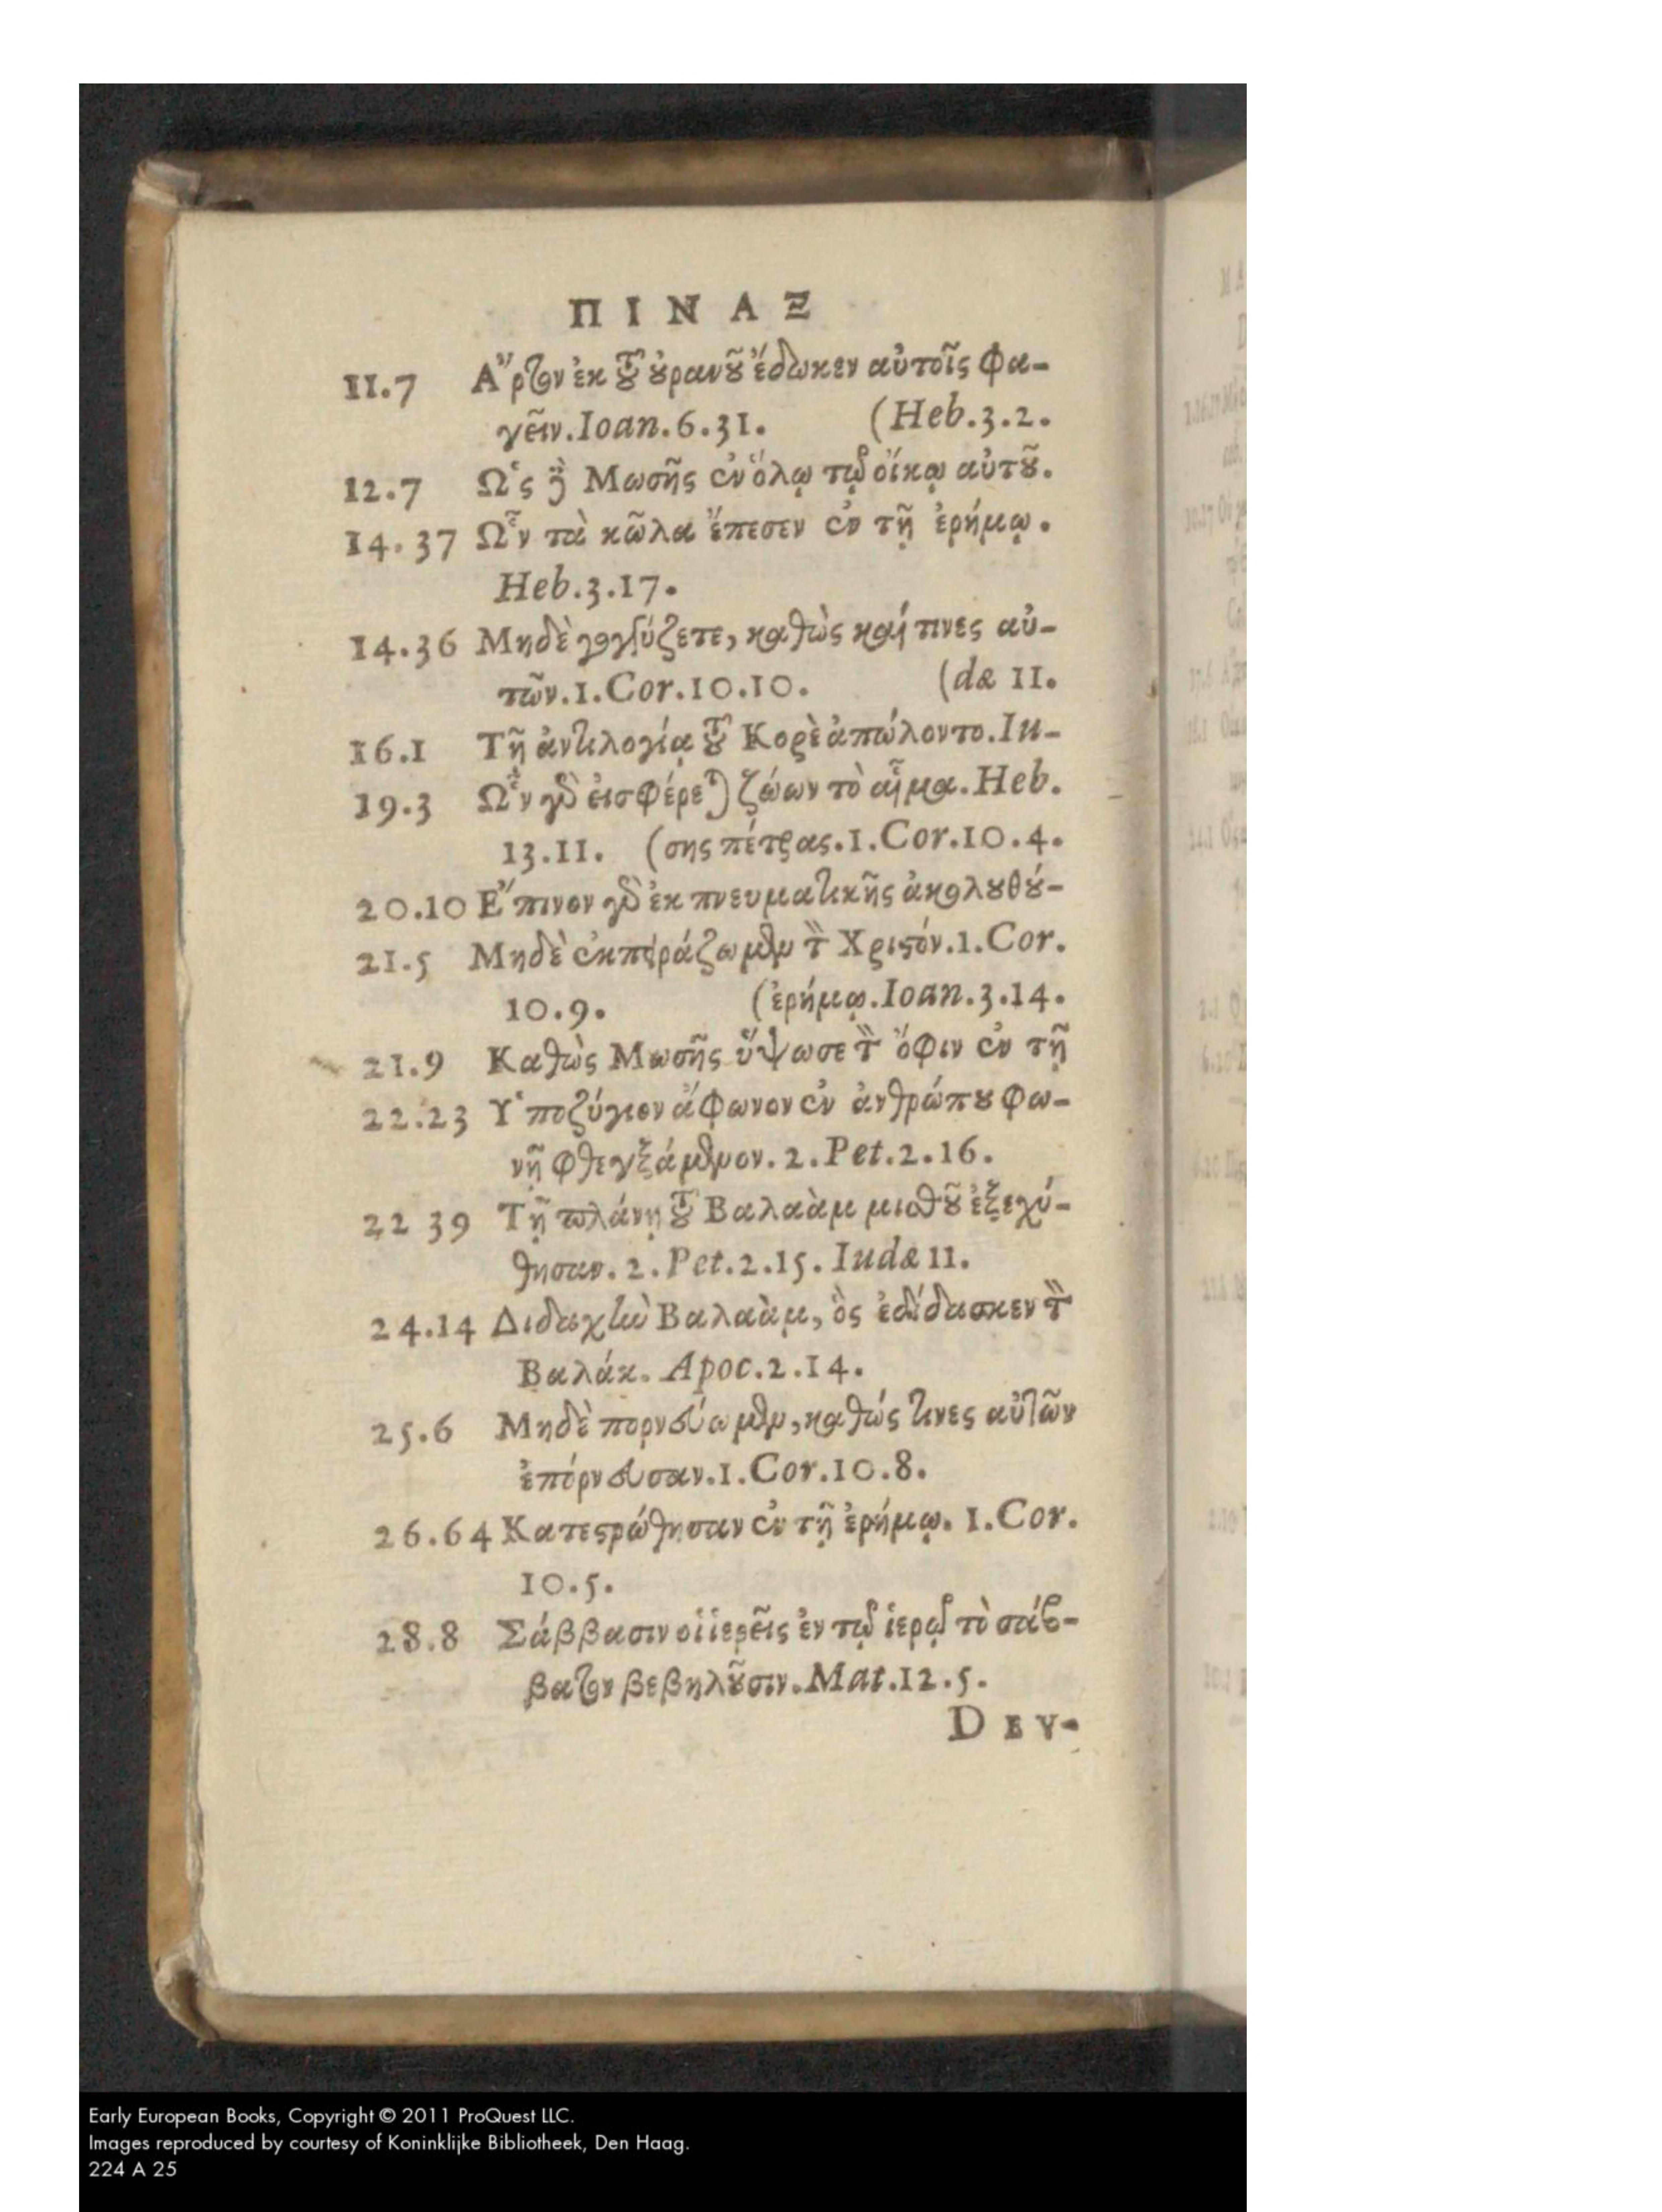 ΠΙΝΑΞ
11.7 Ἄρτον ἐκ τοῦ οὐρανοῦ ἔδωκεν αὐτοῖς φα-
γεῖν. Ioan. 6.31. (Heb. 3.2.
12.7 Ὡς καὶ Μωσῆς ἐν ὅλῳ τῷ οἴκῳ αὐτοῦ.
14.37 Ὧν τὰ κῶλα ἔπεσεν ἐν τῇ ἐρήμῳ.
Heb. 3.17.
14.36 Μηδὲ γογγύζετε, καθὼς καί τινες αὐ-
τῶν. 1. Cor. 10.10. (dæ 11.
16.1 Τῇ ἀντιλογίᾳ τοῦ Κορὲ ἀπώλοντο. Iu-
19.3 Ὧν γὰρ εἰσφέρεται ζώων τὸ αἷμα. Heb.
13.11. (σης πέτρας. 1. Cor. 10.4.
20.10 Ἔπινον γὰρ ἐκ πνευματικῆς ἀκολουθού-
21.5 Μηδὲ ἐκπειράζωμεν τὸν Χριστόν. 1. Cor.
10.9. (ἐρήμῳ. Ioan. 3.14.
21.9 Καθὼς Μωσῆς ὕψωσε τὸν ὄφιν ἐν τῇ
22.23 Ὑποζύγιον ἄφωνον ἐν ἀνθρώπου φω-
νῇ φθεγξάμενον. 2. Pet. 2.16.
22 39 Τῇ πλάνῃ τοῦ Βαλαὰμ μισθοῦ ἐξεχύ-
θησαν. 2. Pet. 2.15. Iudæ 11.
24.14 Διδαχὴν Βαλαὰμ, ὃς ἐδίδασκεν τὸν
Βαλάκ. Apoc. 2.14.
25.6 Μηδὲ πορνεύωμεν, καθώς τινες αὐτῶν
ἐπόρνευσαν. 1. Cor. 10.8.
26.64 Κατεστρώθησαν ἐν τῇ ἐρήμῳ. 1. Cor.
10.5.
28.8 Σάββασιν οἱ ἱερεῖς ἐν τῷ ἱερῷ τὸ σάβ-
βατον βεβηλοῦσιν. Mat. 12.5.
DEV-
Early European Books, Copyright © 2011 ProQuest LLC.
Images reproduced by courtesy of Koninklijke Bibliotheek, Den Haag.
224 A 25